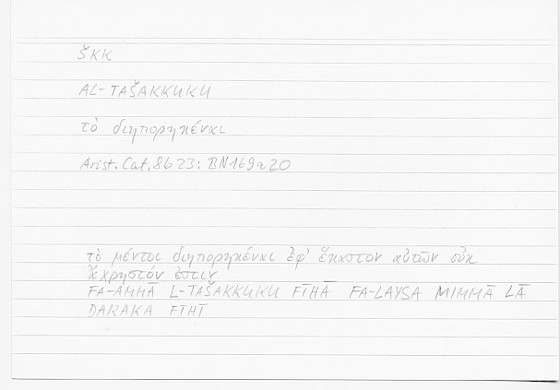 ŠKK
AL-TAŠAKKUKU
τὸ διηπορηκέναι
Arist. Cat. 8b23: BN169a20
τὸ μέντοι διηπορηκέναι ἐφ' ἕκαστον αὐτῶν οὐκ
ἄχρηστόν ἐστιν
FA-AMMĀ L-TAŠAKKUKU FĪHĀ FA-LAYSA MIMMĀ LĀ
DARAKA FĪHĪ